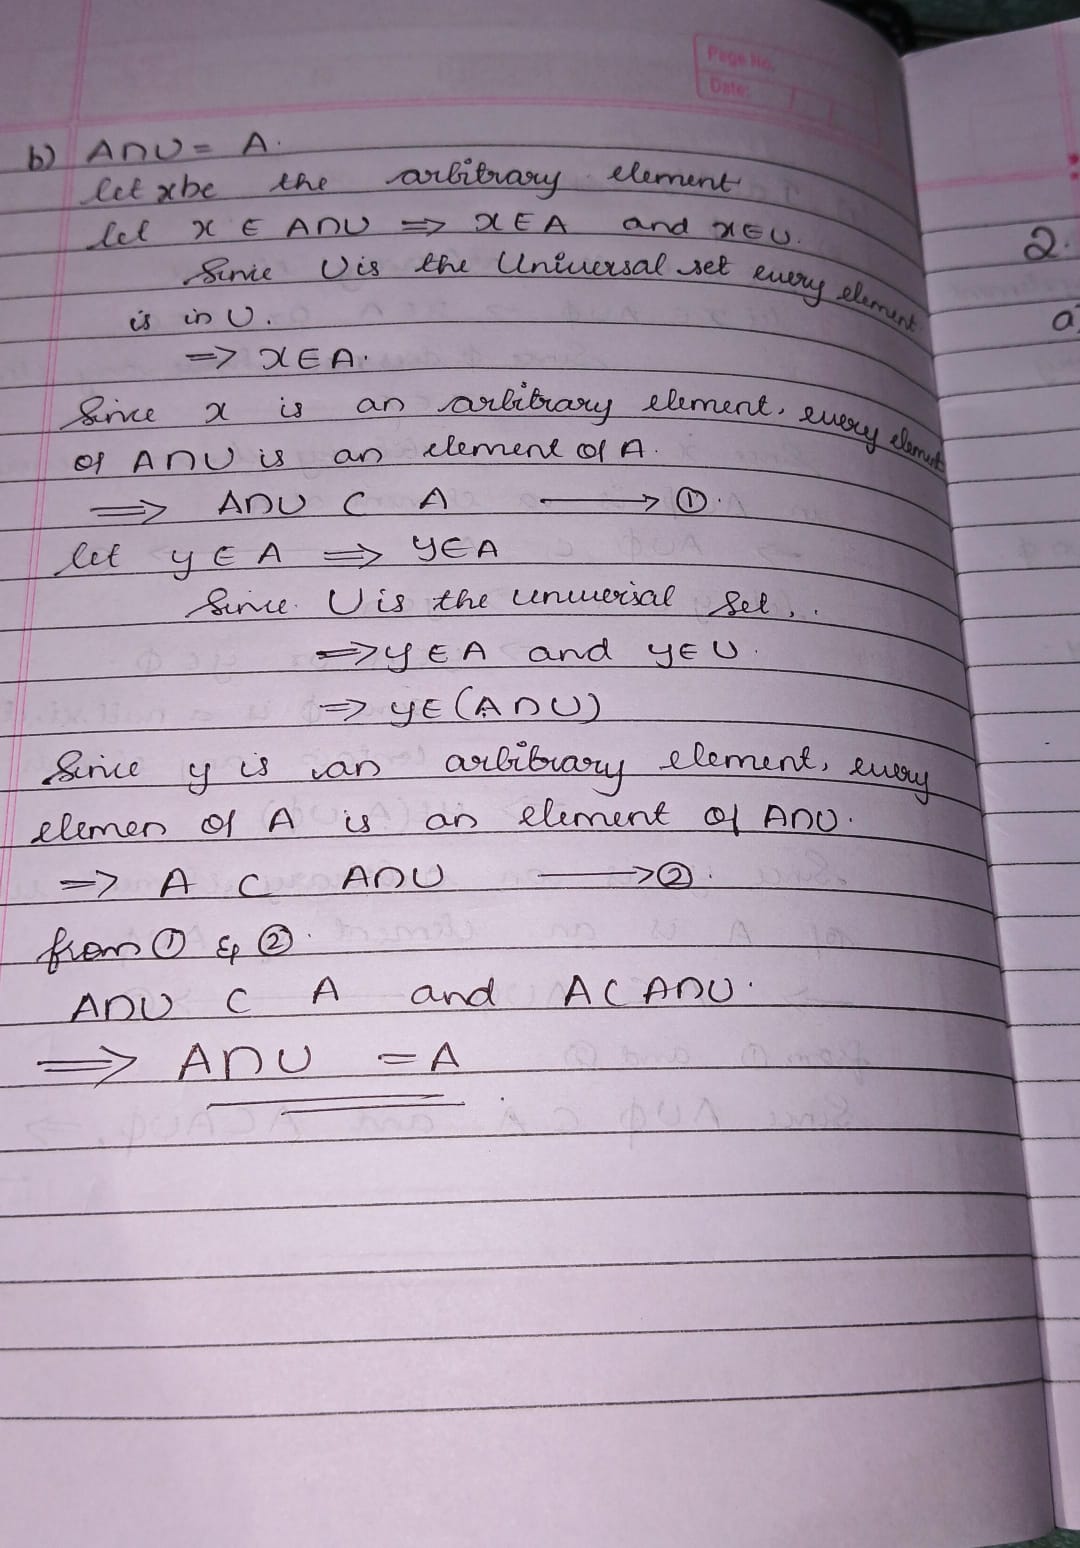 Page No.
Date:
b) A∩U = A.
let x be the arbitrary element
let x ∈ A∩U ⟹ x∈A and x∈U.
Since U is the Universal set every element
is in U.
⟹ x∈A.
Since x is an arbitrary element, every element
of A∩U is an element of A.
⟹ A∩U ⊂ A ⟶ ①.
let y ∈ A ⟹ y∈A
Since U is the universal set,.
⟹ y∈A and y∈U.
⟹ y∈(A∩U)
Since y is an arbitrary element, every
elemen of A is an element of A∩U.
⟹ A ⊂ A∩U ⟶ ②.
from ① & ②.
A∩U ⊂ A and A⊂A∩U.
⟹ A∩U = A
2.
a